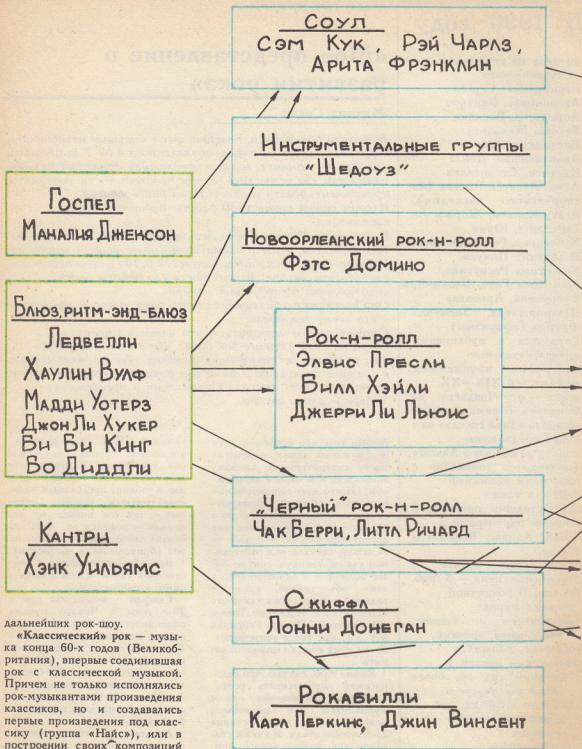 СОУЛ
СЭМ КУК, РЭЙ ЧАРЛЗ,
АРИТА ФРЭНКЛИН
ИНСТРУМЕНТАЛЬНЫЕ ГРУППЫ
"ШЕДОУЗ"
ГОСПЕЛ
МАХАЛИЯ ДЖЕКСОН
НОВООРЛЕАНСКИЙ РОК-Н-РОЛЛ
ФЭТС ДОМИНО
БЛЮЗ, РИТМ-ЭНД-БЛЮЗ
ЛЕДБЕЛЛИ
ХАУЛИН ВУЛФ
МАДДИ УОТЕРЗ
ДЖОН ЛИ ХУКЕР
БИ БИ КИНГ
БО ДИДДЛИ
РОК-Н-РОЛЛ
ЭЛВИС ПРЕСЛИ
БИЛЛ ХЭЙЛИ
ДЖЕРРИ ЛИ ЛЬЮИС
„ЧЕРНЫЙ" РОК-Н-РОЛЛ
ЧАК БЕРРИ, ЛИТТЛ РИЧАРД
КАНТРИ
ХЭНК УИЛЬЯМС
СКИФФЛ
ЛОННИ ДОНЕГАН
РОКАБИЛЛИ
КАРЛ ПЕРКИНС, ДЖИН ВИНСЕНТ
дальнейших рок-шоу.
«Классический» рок — музы-
ка конца 60-х годов (Великоб-
ритания), впервые соединившая
рок с классической музыкой.
Причем не только исполнялись
рок-музыкантами произведения
классиков, но и создавались
первые произведения под клас-
сику (группа «Найс»), или в
построении своих композиций